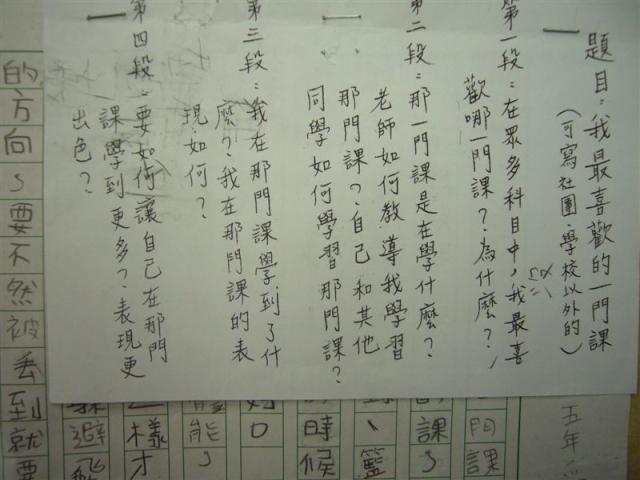 題目：我最喜歡的一門課
（可寫社團、學校以外的）
第一段：在眾多科目中，我最喜
歡哪一門課？為什麼？
第二段：那一門課是在學什麼？
老師如何教導我學習
那門課？自己和其他
同學如何學習那門課？
第三段：我在那門課學到了什
麼？我在那門課的表
現如何？
第四段：要如何讓自己在那門
課學到更多？表現更
出色？
五年
門課
課，
、籃
時候
好。
能，
樣才
避飛
的方向，要不然被丟到就要